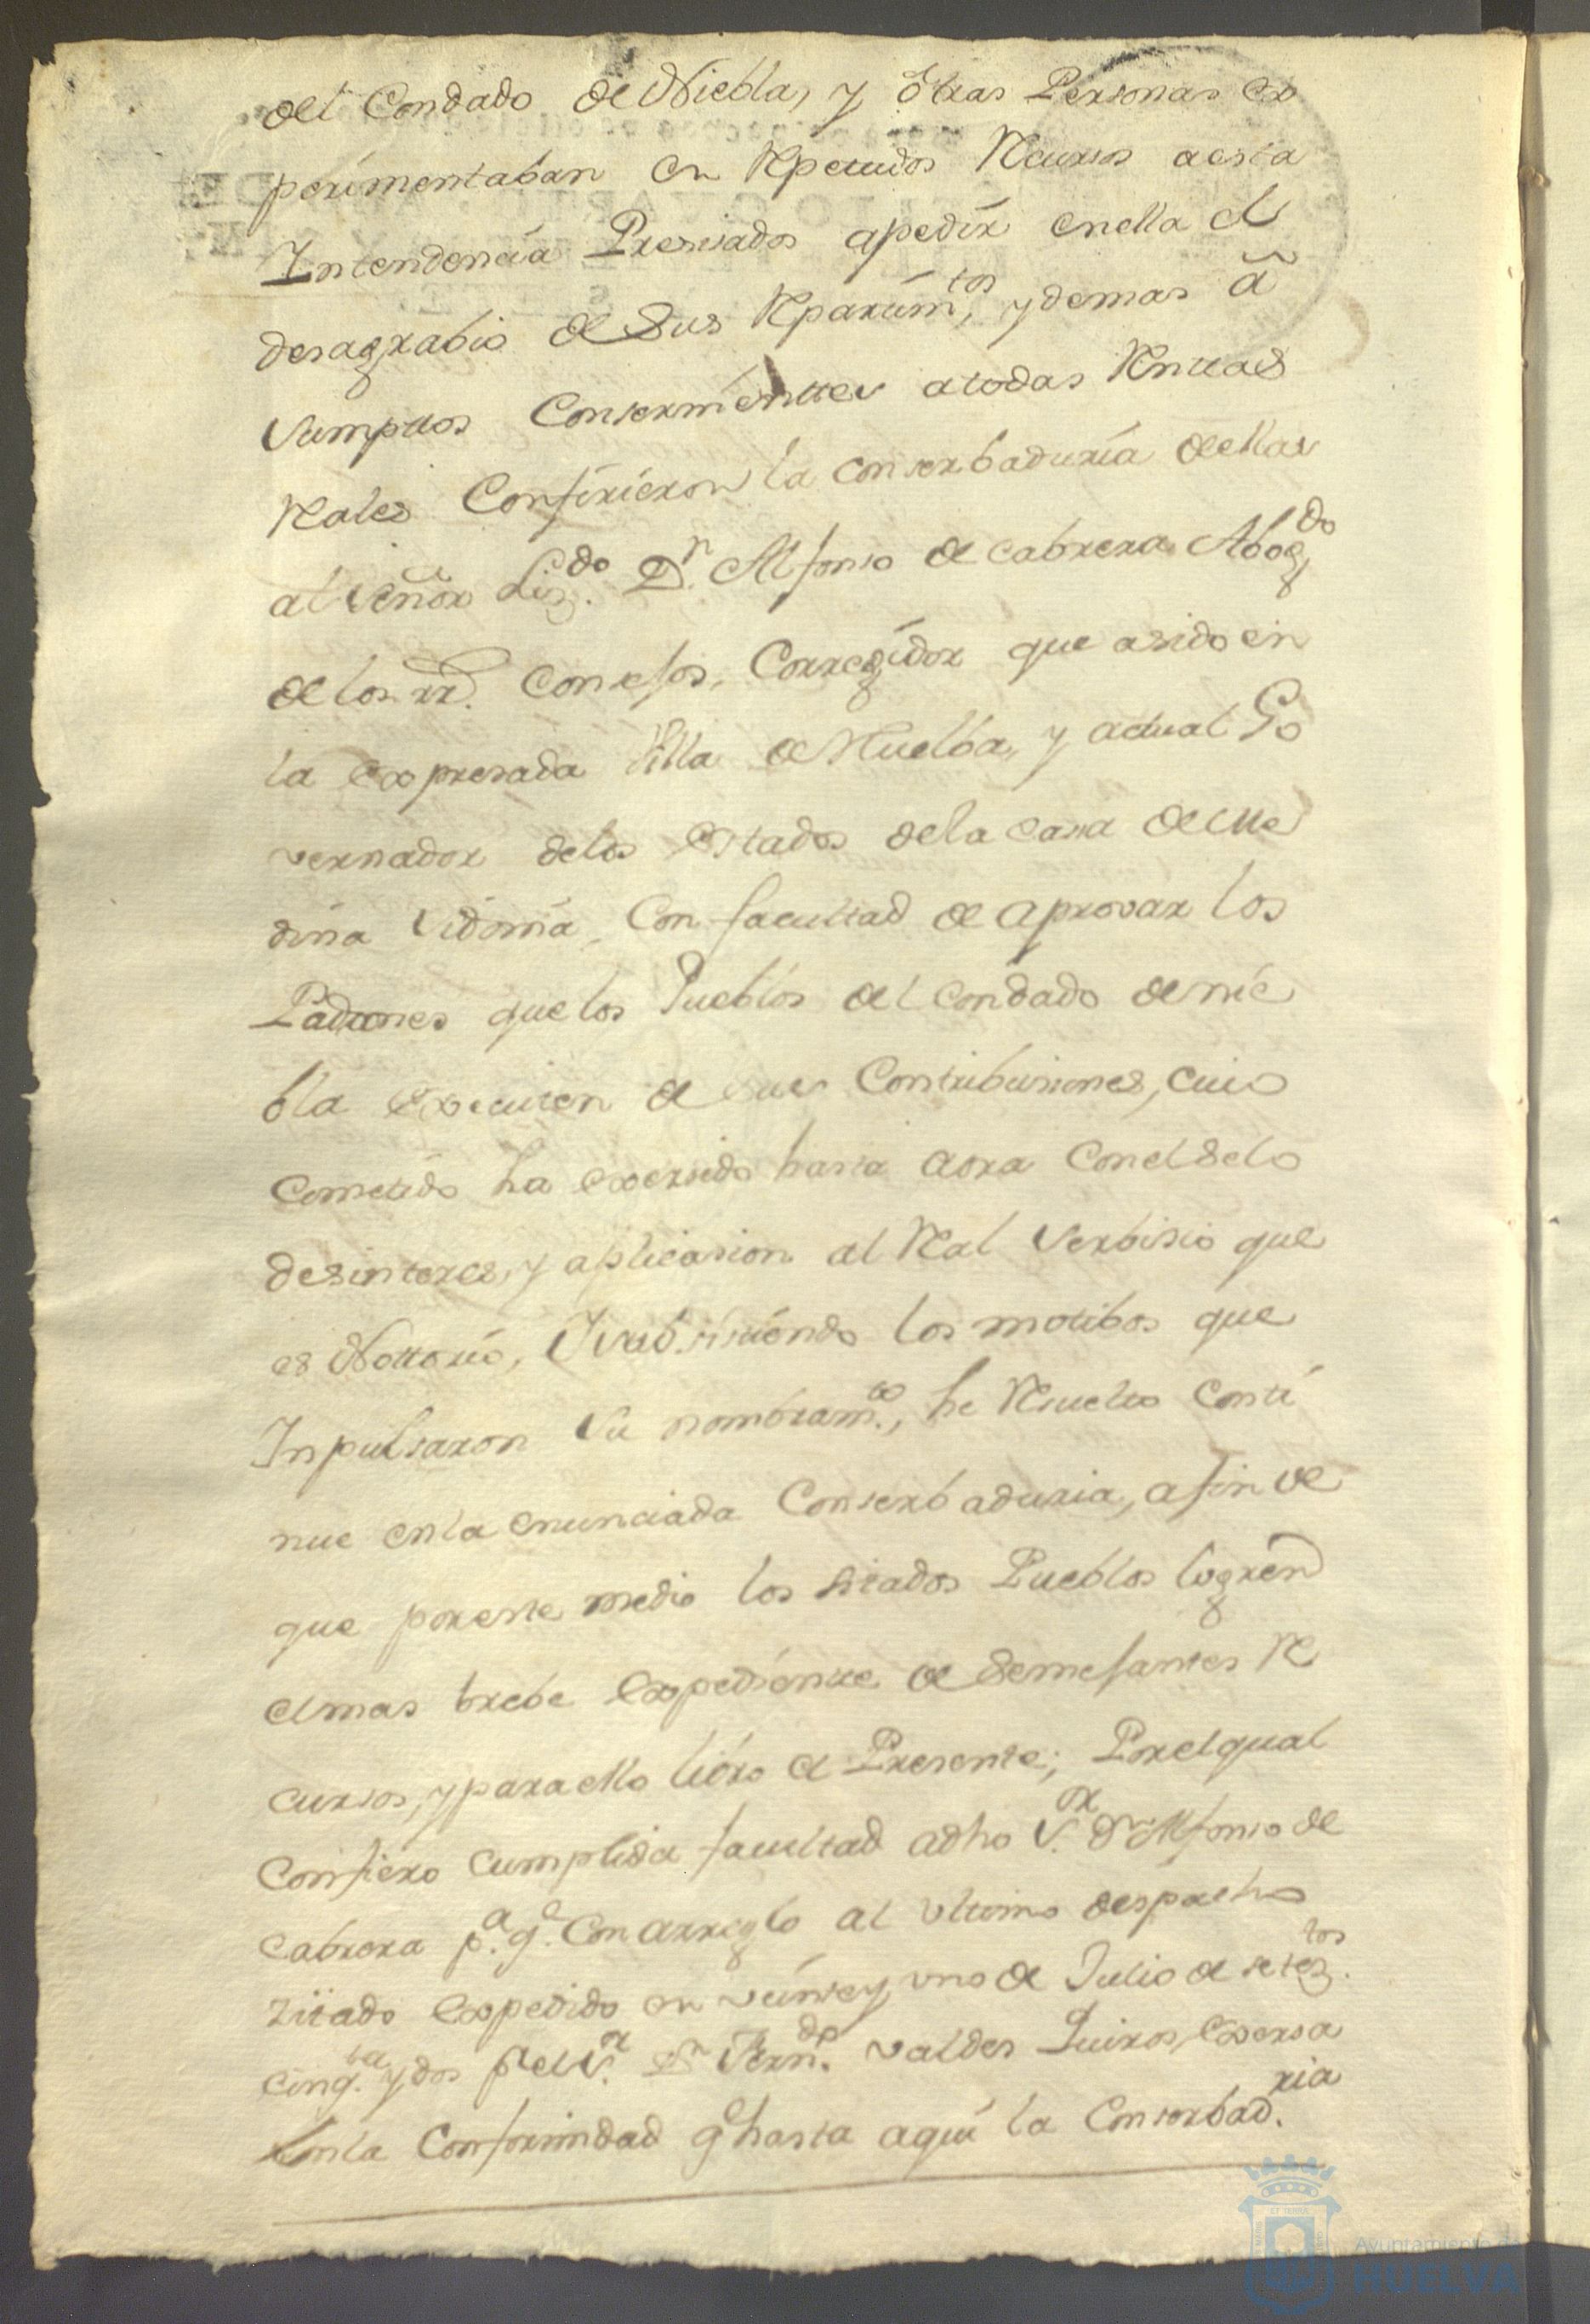 del Condado de Niebla, y otras Personas ex
perimentaban en Repetidos Recursos aesta
Intendencia Presisados apedir enella el
desagrabio de Sus Reparúm.tos, y demas a
sumptos Conserníenttes atodas Renttas
Reales Confirieron la conserbaduría dellas
al Señor Liz.do D.n Alfonso de cabrera Abog.do
de los rr.s consejos, Corregidor que asido en
la expresada Villa de Huelba, y actual Go
vernador delos estados dela casa de Me
dina Sidonia, Con facultad de aprovar los
Padrones que los Pueblos del condado de nie
bla executen de sus Contribusiones, cuio
cometido ha exersido hasta aora con el Selo
desinteres, y aplicasion al Real Serbisio que
es Nottorio, Y subsistiendo los motibos que
Inpulsaron su nombram.to, he Resuelto conti
nue enla enunciada Conserbaduria, afin de
que poreste medio los sitados Pueblos logren
elmas brebe expediente de Semejantes Re
cursos, y para ello libro el Presente; Porelqual
confiero cumplida facultad adho S.or Dn Alfonso de
cabrera p.a q.e Con arreglo al ultimo despacho
zitado expedido en veinte y uno de Julio de setez.tos
cinq.ta y dos p.r el S.r Dn Fern.do valdes Quiros, exersa
enla Conformidad q.e hasta aquí la Conserbad.ria
Ayuntamiento de
HUELVA